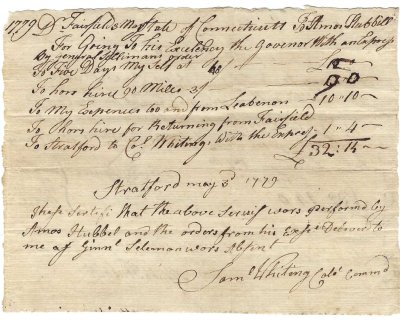 1779 Dr Fairfield May State of Connecticutt To Amos Hubbell
For Going To his Excelency the Govenor With an Express
By general Sillimans order
To Five Days My Self at
To hors hire 90 Miles
To My Expences to and from Leabenon 10=10=
To Ghors hire for Returning from Fairfield
To Stratford to Col Whiting With the Express 1=4=
£32:14=
Stratford may 3d 1779
these sertifi that the above Servis wors performed by
Amos Hubbel and the orders from his Exps Deliver to
me as Ginnl Seleman wors Absent
Saml Whiting Colo Commd